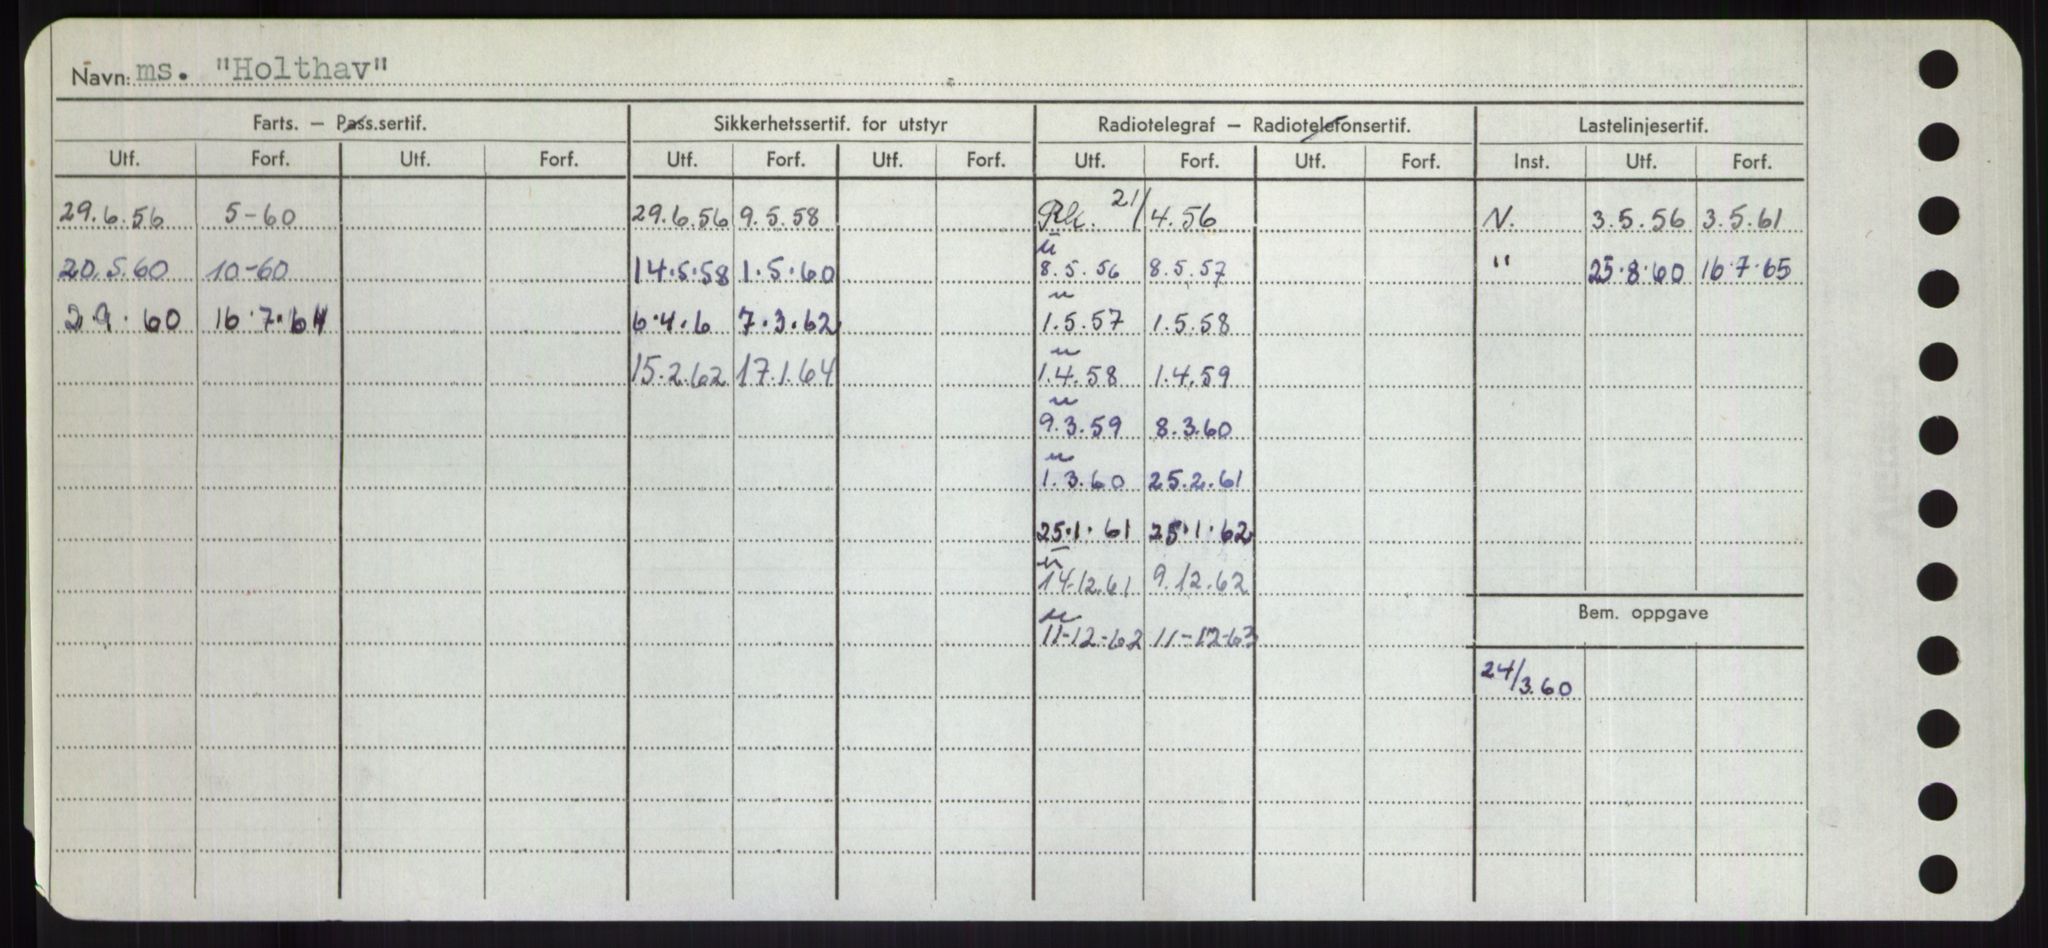 Navn: ms. "Holthav"
Farts. — Pass.sertif. Sikkerhetssertif. for utstyr Radiotelegraf — Radiotelefonsertif. Lastelinjesertif.
Utf. Forf. Utf. Forf. Utf. Forf. Utf. Forf. Utf. Forf. Utf. Forf. Inst. Utf. Forf.
29.6.56 5-60 29.6.56 9.5.58 21/4.56 N. 3.5.56 3.5.61
20.5.60 10-60 14.5.58 1.5.60 8.5.56 8.5.57 " 25.8.60 16.7.65
2.9.60 16.7.64 6.4.6 7.3.62 1.5.57 1.5.58
15.2.62 17.1.64 1.4.58 1.4.59
9.3.59 8.3.60
1.3.60 25.2.61
25.1.61 25.1.62
14-12.61 9.12.62
Bem. oppgave
11-12-62 11-12-63
24/3.60